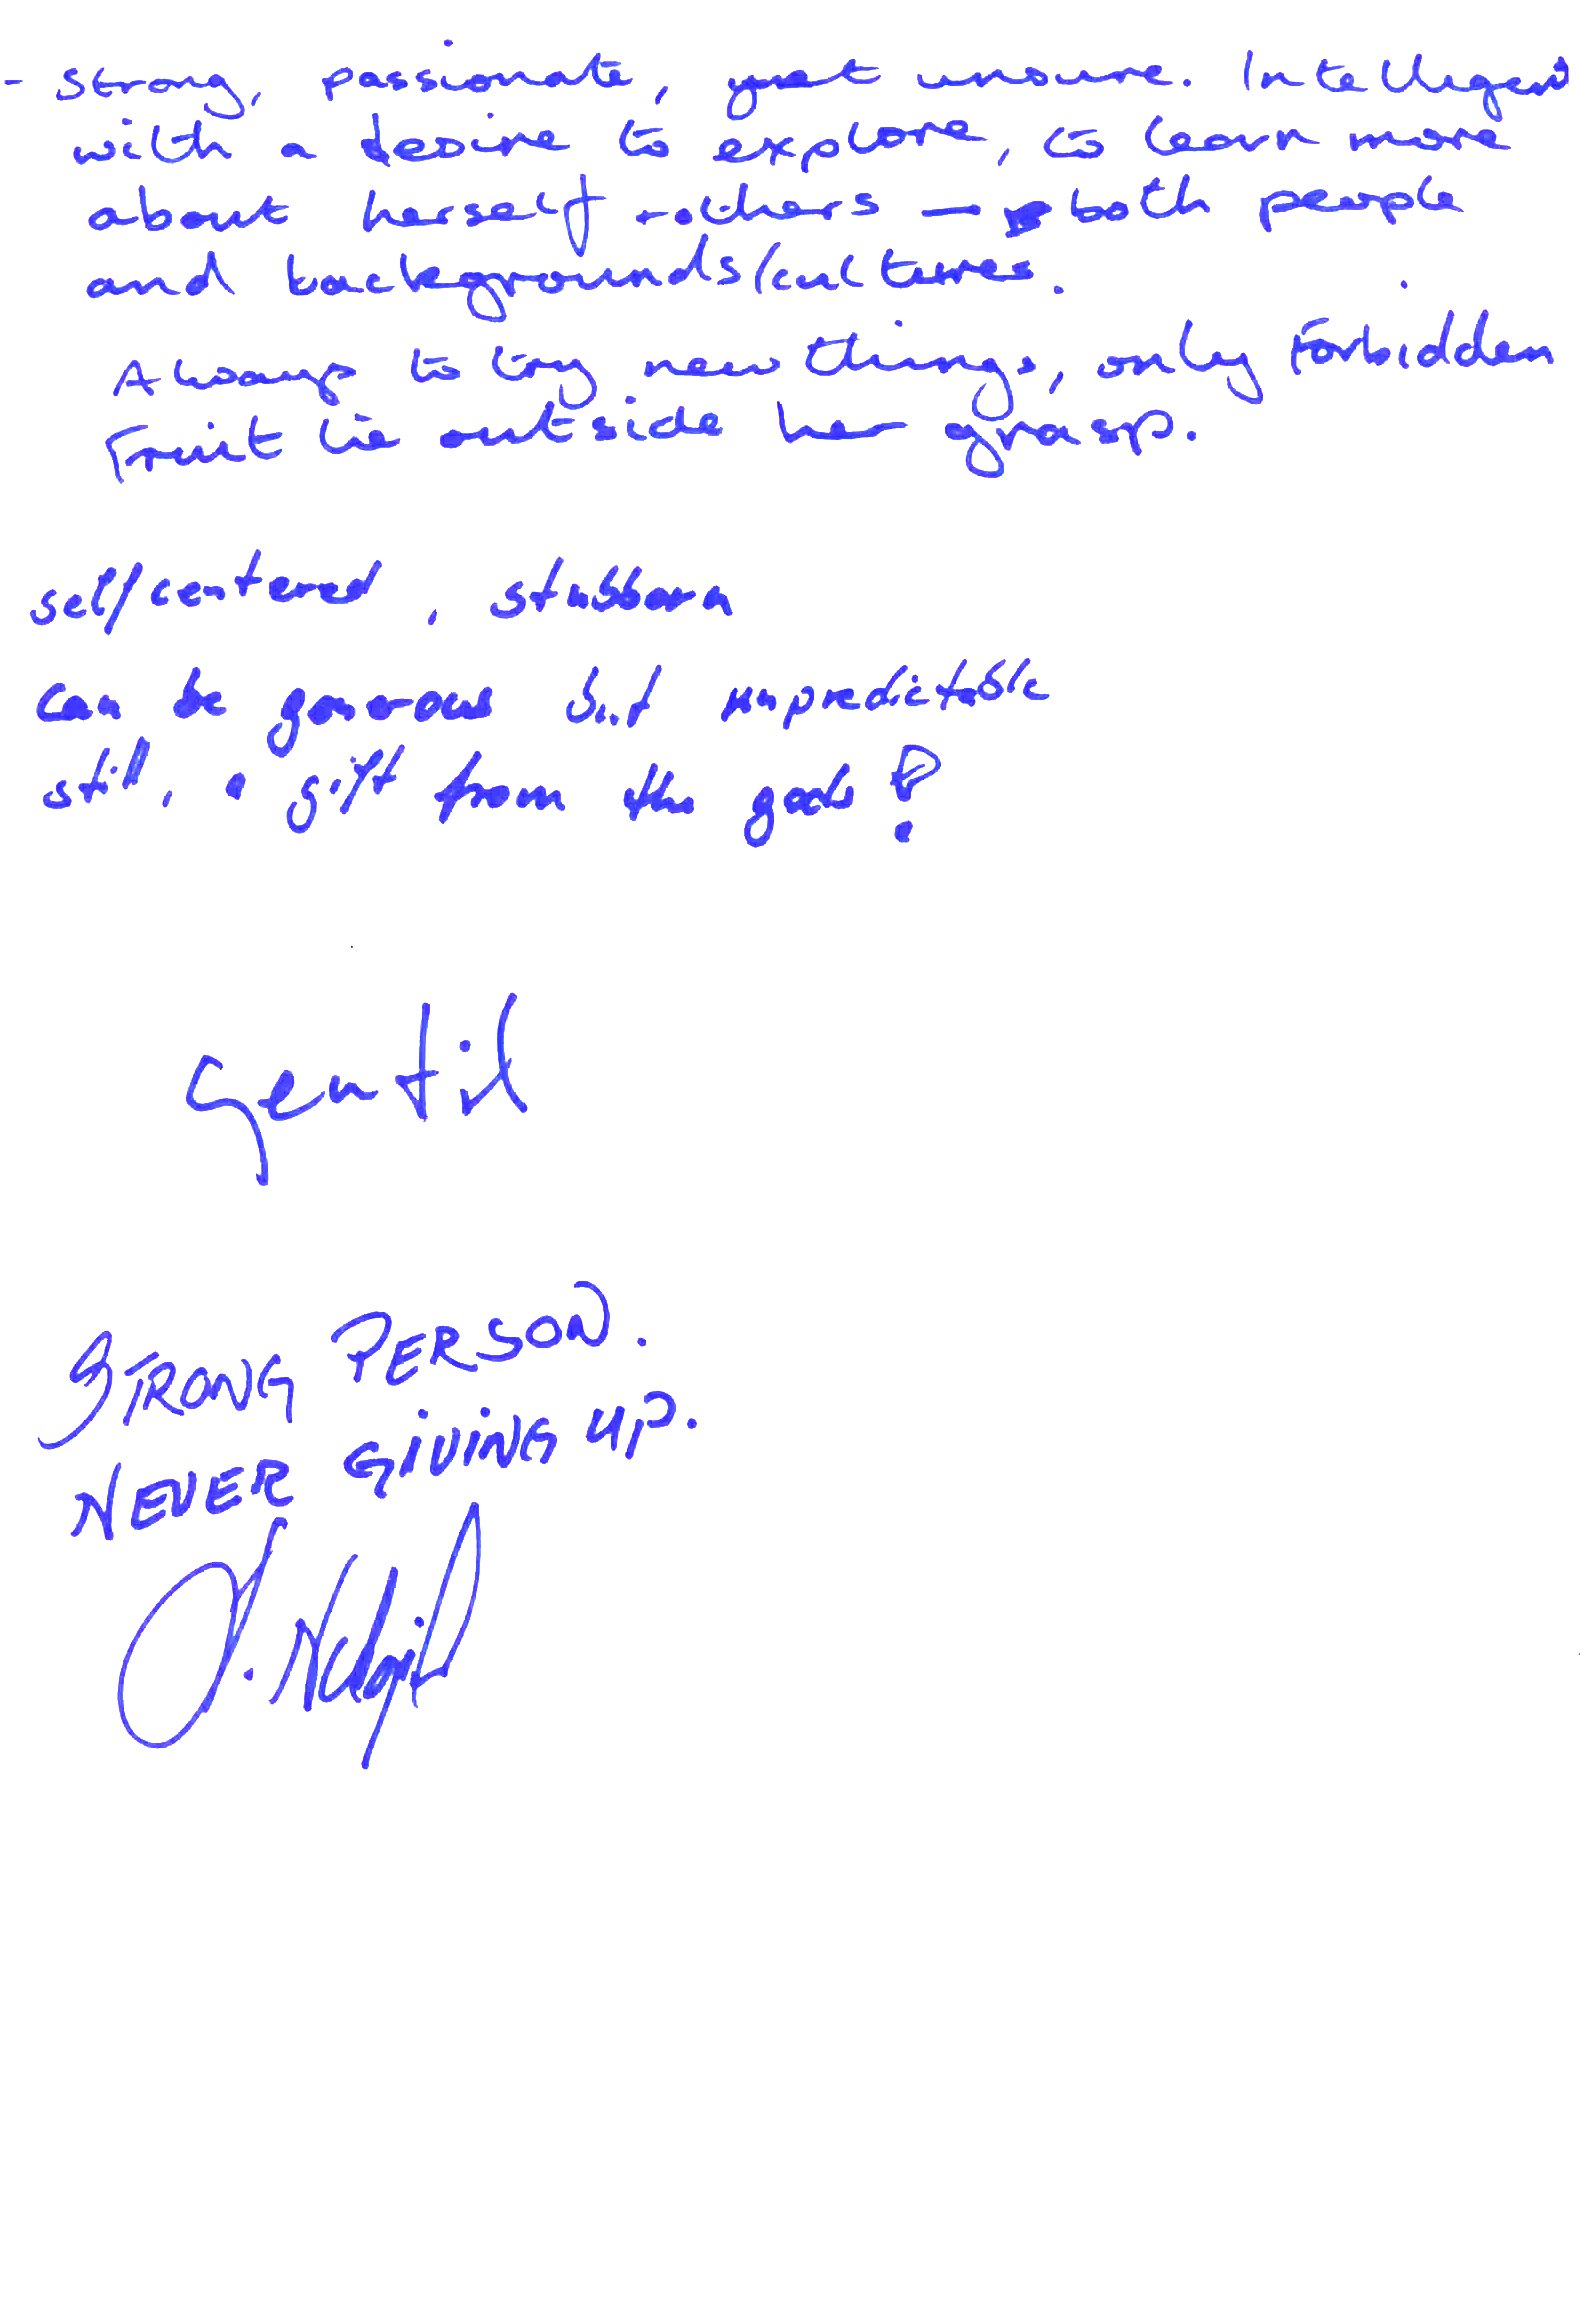 - strong, passionate, yet unsure. Intelligent
with a desire to explore, to learn more
about herself + others — both people
and backgrounds/cultures.
Always to try new things, only Forbidden
Fruit lie outside her grasp.
self centered, stubborn
can be generous but unpredictable
still, a gift from the gods!
gentil
STRONG PERSON.
NEVER GIVING UP.